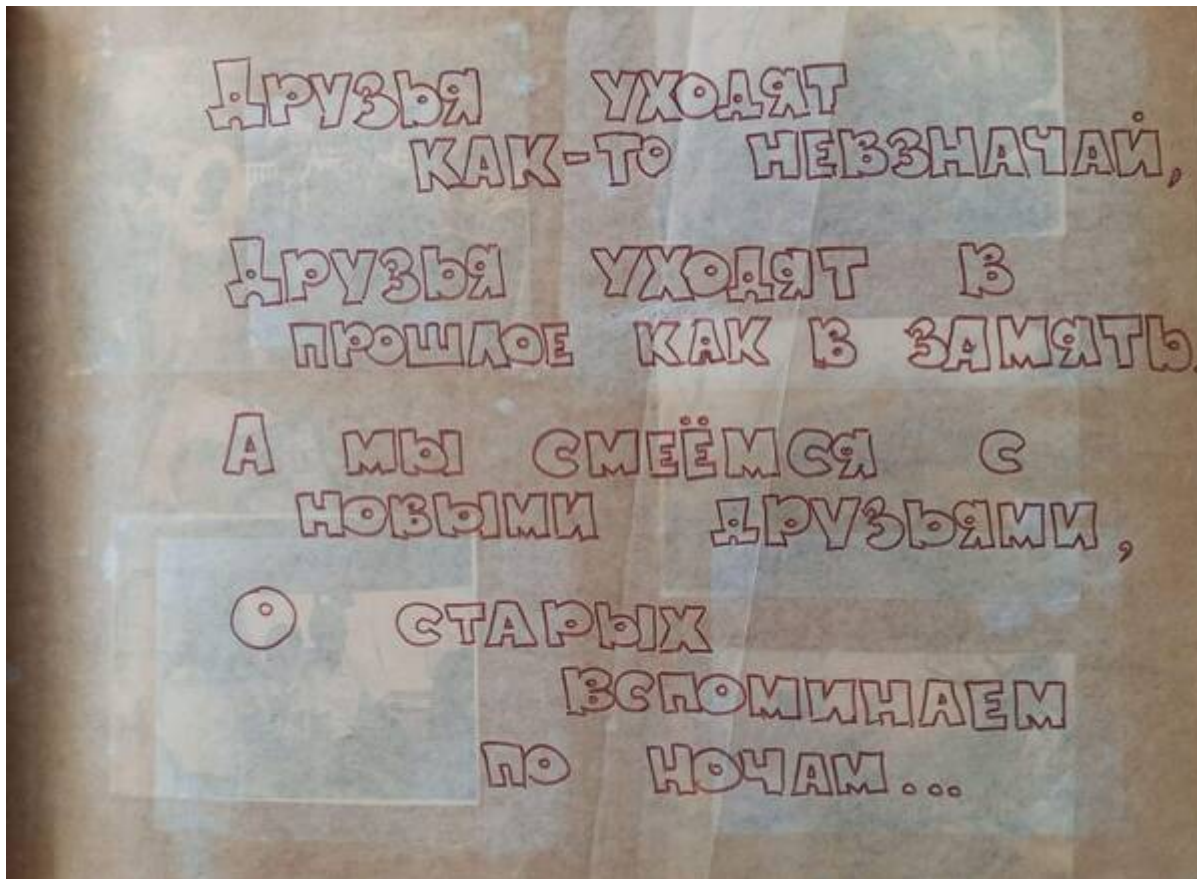 Друзья уходят
как-то невзначай,
Друзья уходят в
прошлое как в замять.
А мы смеёмся с
новыми друзьями,
О старых
вспоминаем
по ночам...